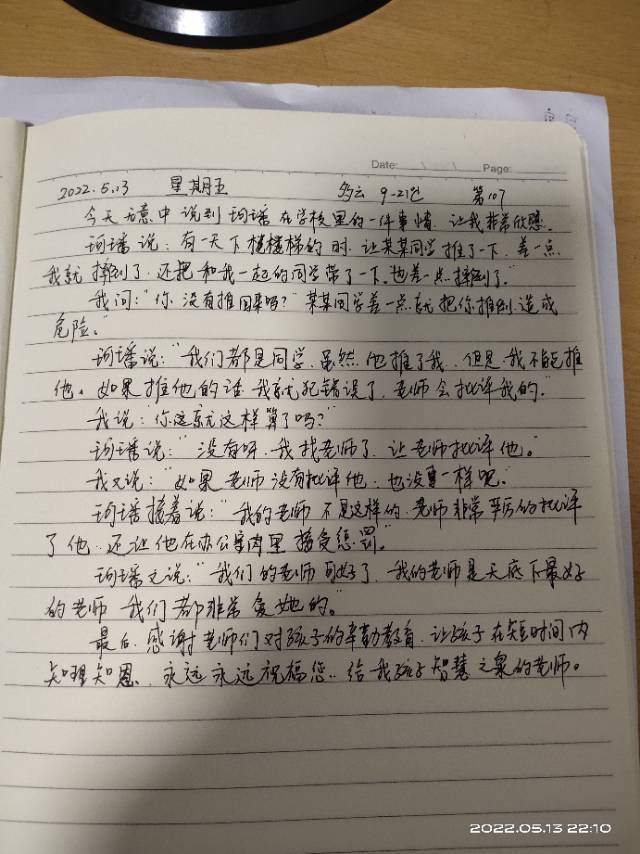 Date: Page:
2022.5.13 星期五 多云 9-21° 第107
今天无意中说到珂璠在学校里的一件事情.让我非常欣慰.
珂璠说:有一天下楼楼梯的时.让某某同学推了一下.差一点
我就摔倒了.还把和我一起的同学带了一下.也差一点摔倒了."
我问:"你没有推回来吗?"某某同学差一点就把你推倒.造成
危险。
珂璠说:"我们都是同学.虽然他推了我.但是.我不能推
他。如果推他的话.我就犯错误了.老师会批评我的."
我说:"你这就这样算了吗?"
珂璠说:"没有呀.我找老师了.让老师批评他。"
我又说:"如果老师没有批评他.也没一样呢。"
珂璠接着说:"我的老师不是这样的.老师非常严厉的批评
了他.还让他在办公室里接受惩罚。"
珂璠又说:"我们的老师可好了.我的老师是天底下最好
的老师.我们都非常爱她的。"
最后.感谢老师们对孩子的辛勤教育.让孩子在短时间内
知理知恩、永远永远祝福您..给我孩子智慧之泉的老师。
2022.05.13 22:10